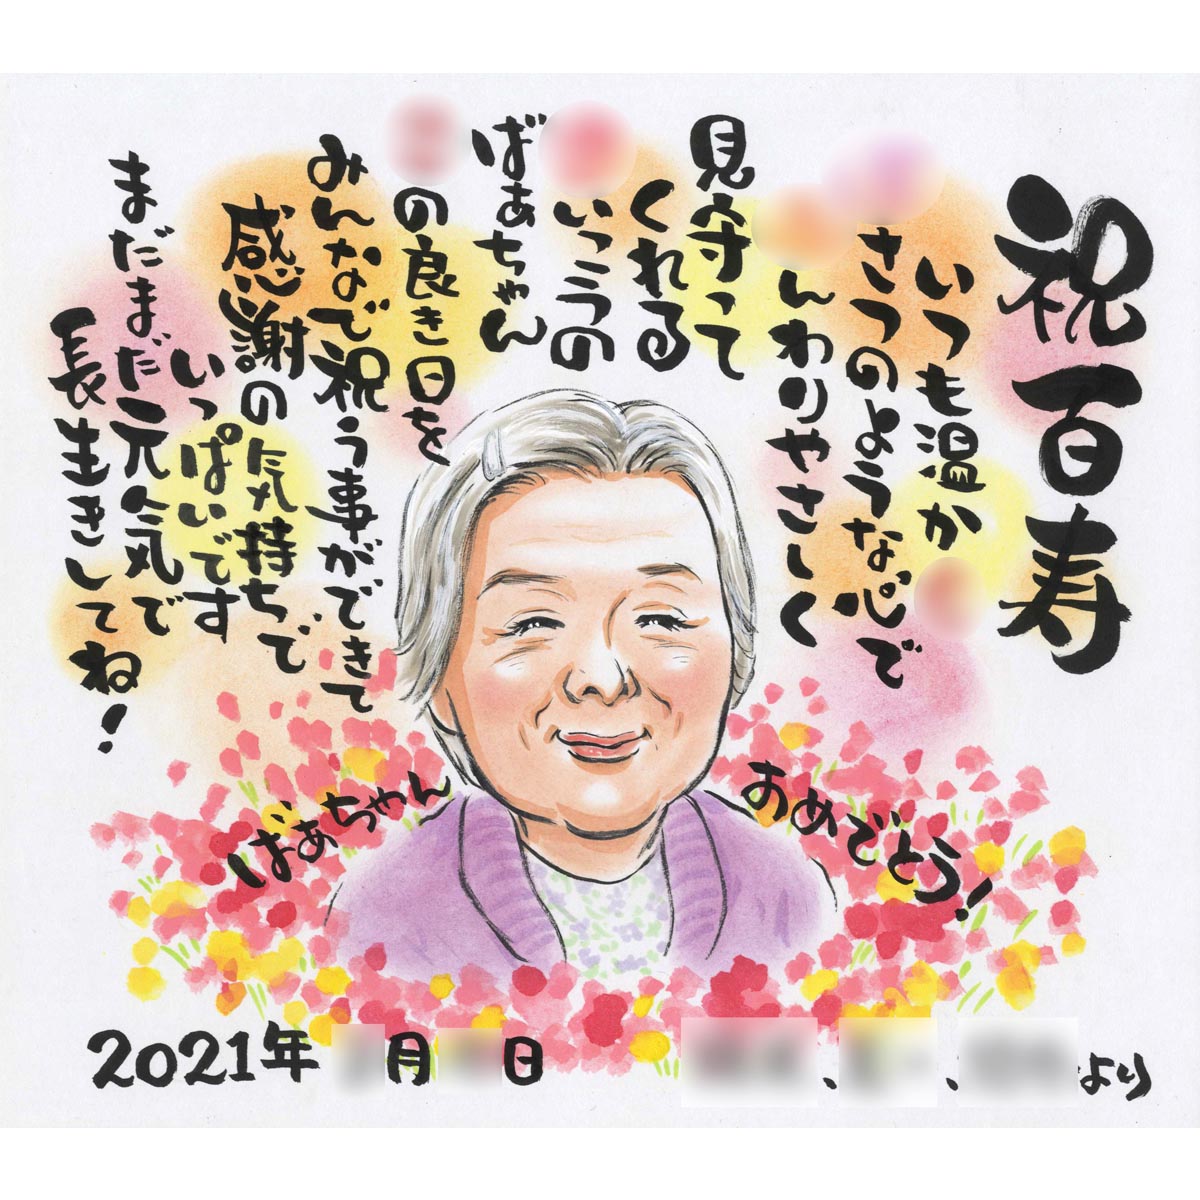 祝百寿
いつも温か
さつのような心で
んわりやさしく
見守って
くれる
いっうの
ばあちゃん
の良き日を
みんなで祝う事ができて
感謝の気持ちで
いっぱいです
まだまだ元気で
長生きしてね!
ばあちゃん
おめでとう!
2021年 月 日
、 、 より